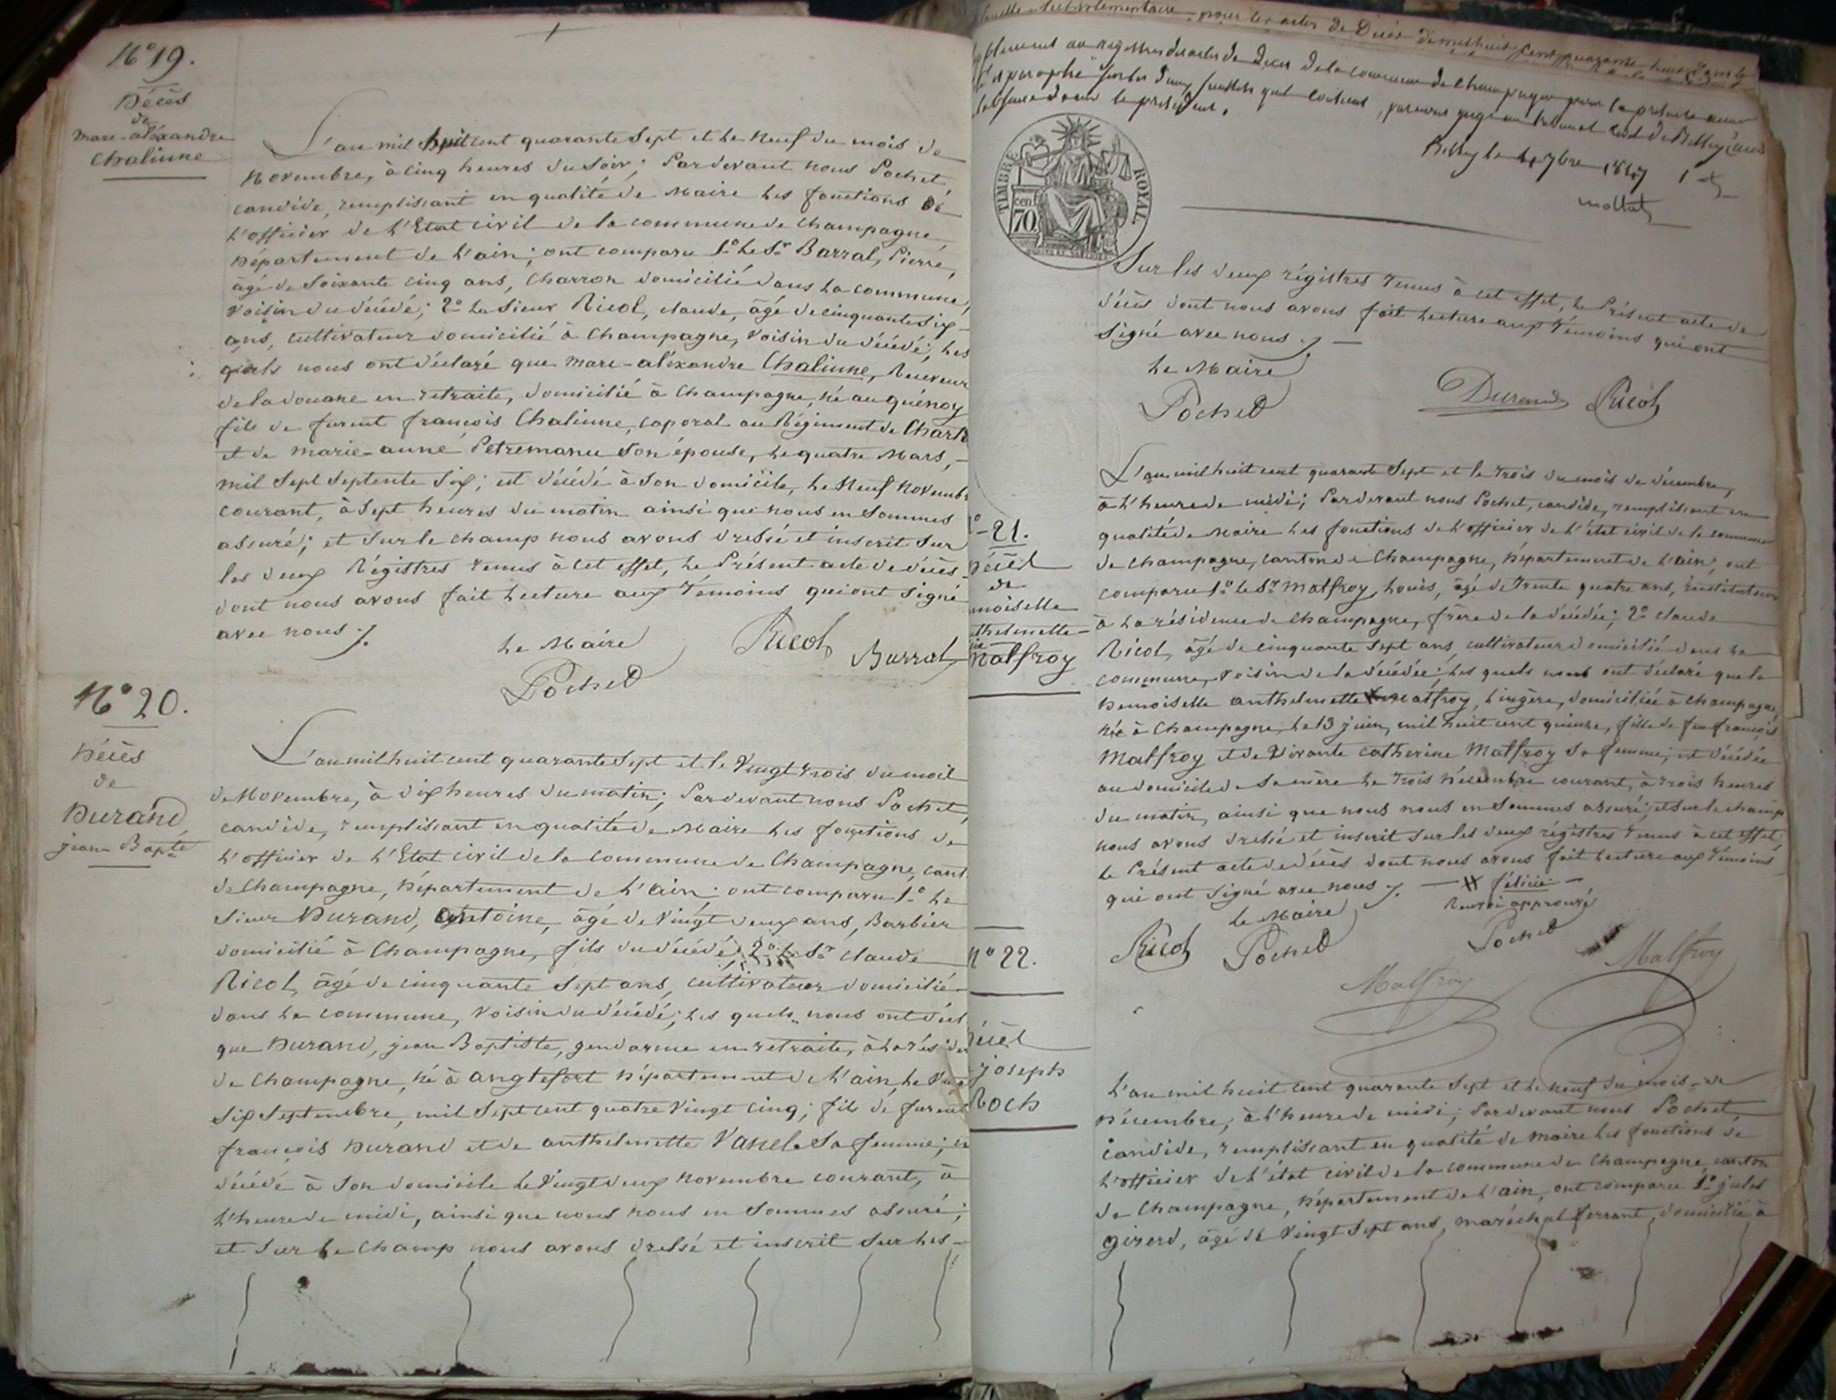 N° 19.
Décès
de
marc-aléxandre
Chalinne
L'an mil huit cent quarante Sept et Le Neuf du mois de
Novembre, à cinq heures du Soir; Pardevant nous Pochet,
candide, remplissant en qualité de Maire Les fonctions de
L'officier de L'Etat civil de la commune de Champagne
Département de L'ain; ont comparu 1° Le Sr Barral, Pierre,
âgé de Soixante cinq ans, Charron domicilié dans La commune,
voisin du décédé; 2° Le Sieur Ricol, claude, âgé de cinquante Six
ans, cultivateur domicilié à Champagne, voisin du décédé; Les
quels nous ont déclaré que marc-aléxandre Chalinne, Receveur
de la douane en retraite, domicilié à Champagne, né au quénoy
fils de furent françois Chalinne, caporal au Régiment de
et de marie-anne Petremanu Son épouse, Le quatre Mars,
mil Sept Septente Six; est décédé à Son domicile, Le Neuf Novembre
courant, à Sept heures du matin ainsi que nous en Sommes
assuré; et Sur le champ nous avons dressé et inscrit Sur
Les deux Régistres tenus à cet effet, Le Présent acte de décès
dont nous avons fait Lecture aux Témoins qui ont Signé
avec nous
Le Maire
Ricol
Barral
Pochet
N° 20.
Décès
de
Durand
jean Bapte
L'an mil huit cent quarante Sept et Le Vingt trois du mois
de Novembre, à dix heures du matin; Pardevant nous Pochet,
candide, remplissant en qualité de Maire Les fonctions de
L'officier de L'Etat civil de la commune de Champagne, cant
de Champagne, Département de L'ain; ont comparu 1° Le
Sieur Durand, antoine, âgé de Vingt deux ans, Barbier
domicilié à Champagne, fils du décédé; 2° Le Sr claude
Ricol, âgé de cinquante Sept ans, cultivateur domicilié
dans La commune, voisin du décédé; Les quels nous ont décl
que Durand, jean Baptiste, gendarme en retraite, à La résiden
de Champagne, né à anglefort Département de L'ain, Le Vingt
Six Septembre, mil Sept cent quatre Vingt cinq; fils de furent
françois Durand et de anthelmette Vanel Sa femme; est
décédé à Son domicile Le Vingt deux Novembre courant, à
L'heure de midi, ainsi que nous nous en Sommes assuré;
et Sur Le champ nous avons dressé et inscrit Sur Les
feuille supplémentaire pour les actes de Décès de mil huit cent quarante
au registre des actes de Décès de la commune de champagne pour la présente année
paraphé
Belley le 4 7bre 1847
TIMBRE ROYAL
70
Sur les deux régistres tenus à cet effet, Le Présent acte de
décès dont nous avons fait Lecture aux Témoins qui ont
Signé avec nous
Le Maire
Pochet
Durand
Ricol
21.
Décès
de
moiselle
thelmette
Malfroy
L'an mil huit cent quarante Sept et le trois du mois de décembre,
à L'heure de midi; Pardevant nous Pochet, candide, remplissant en
qualité de Maire Les fonctions de L'officier de L'état civil de la commune
de Champagne, canton de Champagne, Département de L'ain, ont
comparu 1° Le Sr Malfroy, Louis, âgé de trente quatre ans, instituteur
à La résidence de Champagne, frère de la décédée; 2° claude
Ricol, âgé de cinquante Sept ans, cultivateur domicilié dans La
commune, voisin de la décédée; Les quels nous ont déclaré que la
Demoiselle anthelmette Malfroy, Lingère, domiciliée à Champagne
Née à Champagne, Le 13 juin, mil huit cent quinze, fille de feu françois
Malfroy et de Vivante catherine Malfroy Sa femme; est décédée
au domicile de Sa mère Le Trois Décembre courant, à trois heures
du matin, ainsi que nous nous en Sommes assuré; et sur le champ
nous avons dressé et inscrit Sur les deux régistres tenus à cet effet
le Présent acte de décès dont nous avons fait Lecture aux Témoins
qui ont Signé avec nous
félicie
Renvoi approuvé
Le Maire
Ricol
Pochet
Pochet
Malfroy
Malfroy
N° 22.
Décès
joseph
Roch
L'an mil huit cent quarante Sept et Le neuf du mois de
Décembre, à L'heure de midi; Pardevant nous Pochet,
candide, remplissant en qualité de maire Les fonctions de
L'officier de L'état civil de la commune de Champagne, canton
de Champagne, Département de L'ain, ont comparu 1° jules
girerd, âgé de Vingt Sept ans, maréchal ferrant, domicilié à